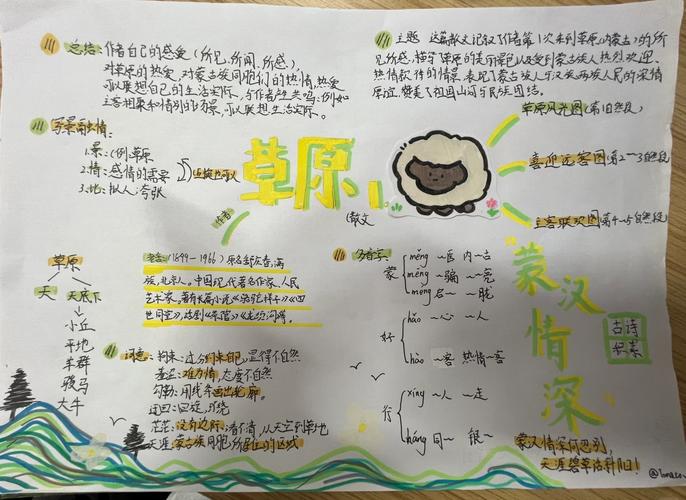 总结:作者自己的感受(所见、所闻、所感)、
对草原的热爱,对蒙古族同胞们的热情,热爱
可以联想自己的生活实际,与作者
主客相聚和惜别的场景,可以联想生活实际。
主题 这篇散文记叙了作者第1次来到草原(内蒙古)的所
见所感,描写了草原的美丽景色以及受到蒙古族人热烈欢迎、
热情款待的情景,表现了蒙古族人与汉族两族人民的深情
厚谊,赞美了祖国山河与民族团结。
写景融情:
1.景:(例草原
2.情:感情的需要
3.地:拟人;夸张
草原
(散文
草原风光图(第1自然段)
喜迎远客图(第2~3自然段)
主客联欢图(第4~5自然段)
作者
老舍:(1899-1966)原名舒庆春,满
族,北京人。中国现代著名作家、人民
艺术家。著有长篇小说《骆驼祥子》《四
世同堂》,话剧《茶馆》《龙须沟》等。
草原
天 天底下
小丘
平地
羊群
骏马
大牛
词意:拘束:过分约束自己,显得不自然
羞涩:难为情,态度不自然
勾勒:用线条画出轮廓。
迂回:回旋,环绕
茫茫:没有边际,看不清,从天空到草地
天涯:蒙古族同胞所居住的区域
多音字
蒙
měng ~医 内~古
mēng ~骗 ~亮
méng 名~ ~眬
好
hǎo ~心 ~人
hào ~客 热情~客
行
xíng ~人 ~走
háng 同~ 银~
蒙汉情深
古诗
积累
蒙汉情深何忍别,
天涯碧草话斜阳!